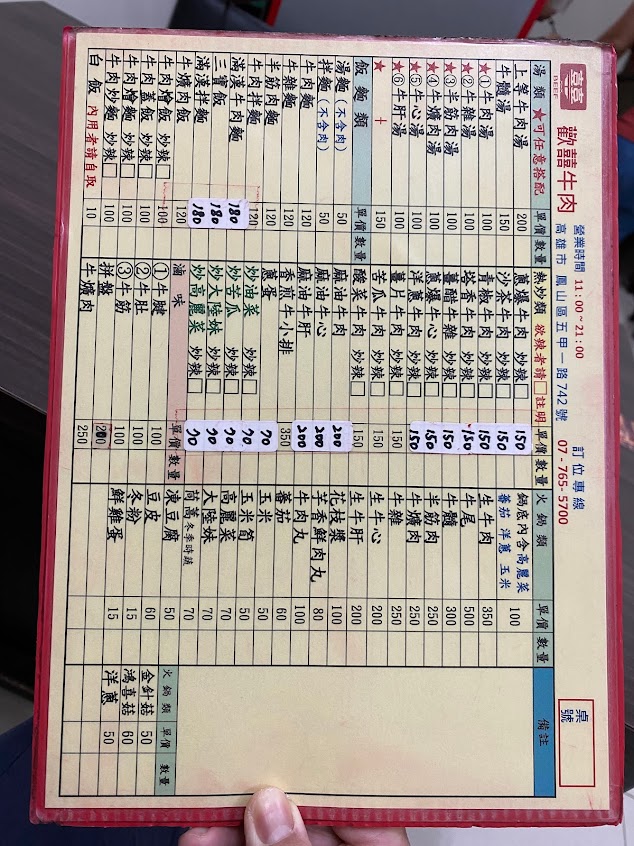 喜喜 BEEF 歡囍牛肉
營業時間 11:00~21:00 訂位專線
高雄市 鳳山區五甲一路742號 07-765-5700
桌號
湯類 ★可任意搭配 單價 數量
上等牛肉湯 200
牛髓湯 150
★①牛肉湯 100
★②牛雜湯 100
★③半筋肉湯 100
★④牛爌肉湯 100
★⑤牛心湯 100
★⑥牛肝湯 100
★ + 150
飯麵類 單價 數量
湯麵(不含肉) 50
拌麵(不含肉) 50
牛肉麵 120
牛雜麵 120
半筋肉麵 120
牛肉拌麵 120
滿漢牛肉麵 180
三寶飯 180
滿漢拌麵 180
牛爌肉飯 120
牛肉燴飯 炒辣□ 100
牛肉蓋飯 炒辣□ 100
牛肉燴麵 炒辣□ 100
牛肉炒麵 炒辣□ 100
白飯 內用者請自取 10
熱炒類 欲辣者請□註明 單價 數量
蔥爆牛肉 炒辣□ 150
沙茶牛肉 炒辣□ 150
青椒牛肉 炒辣□ 150
塔香牛肉 炒辣□ 150
薑醋牛雜 炒辣□ 150
蔥爆牛心 炒辣□ 150
洋蔥牛肉 炒辣□ 150
薑片牛肉 炒辣□ 150
苦瓜牛肉 炒辣□ 150
酸菜牛肉 炒辣□ 150
麻油牛肉 200
麻油牛心 200
麻油牛肝 200
香煎牛小排 350
蔥蛋 70
炒油菜 炒辣□ 70
炒苦瓜 炒辣□ 70
炒大陸妹 炒辣□ 70
炒高麗菜 炒辣□ 70
滷味 單價 數量
①牛腱 100
②牛肚 100
③牛筋 100
拼盤 200
牛爌肉 250
火鍋類 單價 數量
鍋底內含高麗菜
番茄 洋蔥 玉米 100
生牛肉 350
牛尾 500
牛髓 300
半筋肉 250
牛爌肉 250
牛雜 250
生牛心 200
生牛肝 200
花枝漿 100
芋香鮮肉丸 80
牛肉丸 100
番茄 60
玉米 50
玉米筍 50
高麗菜 70
大陸妹 70
茼蒿 冬季時蔬 70
凍豆腐 50
豆皮 60
冬粉 15
鮮雞蛋 15
備註
火鍋類 單價 數量
金針菇 50
鴻喜菇 60
洋蔥 50